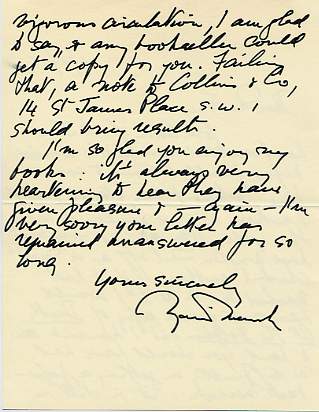 vigorous circulation, I am glad
to say, & any bookseller could
get a copy for you. Failing
that, a note to Collins & Co,
14 St James Place S.W.1
should bring results.
I'm so glad you enjoy my
books. It's always very
heartening to hear they have
given pleasure & – again – I'm
very sorry your letter has
remained unanswered for so
long.
Yours sincerely